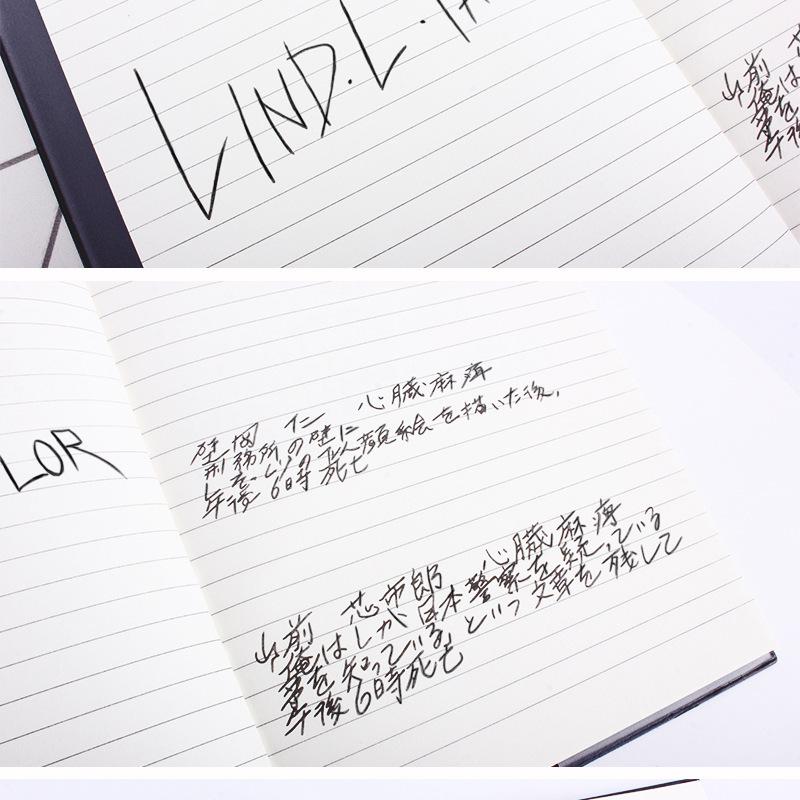 LIND.L.TA
山前
俺は
事を
午後
LOR
仁 心臓麻痺
刑務所の壁に
顔絵を描いた後、
午後6時死亡
山前 芯市郎 心臓麻痺
俺はLが日本警察を疑っている
事を知っている。という文章を残して
午後6時死亡